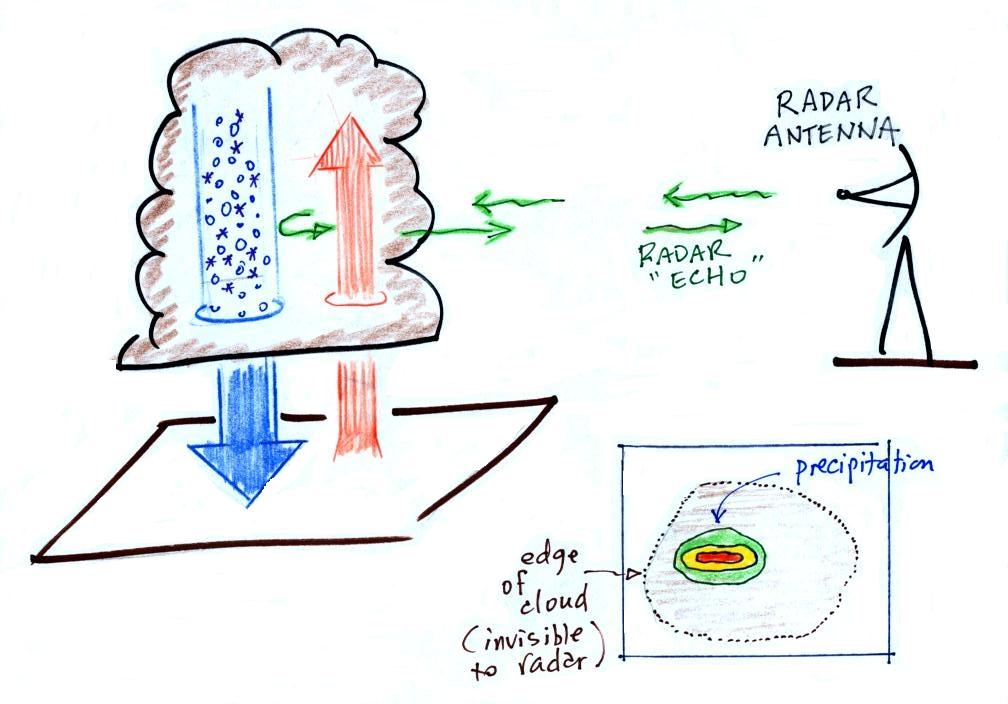 RADAR
ANTENNA
RADAR
"ECHO"
precipitation
edge
of
cloud
(invisible
to radar)